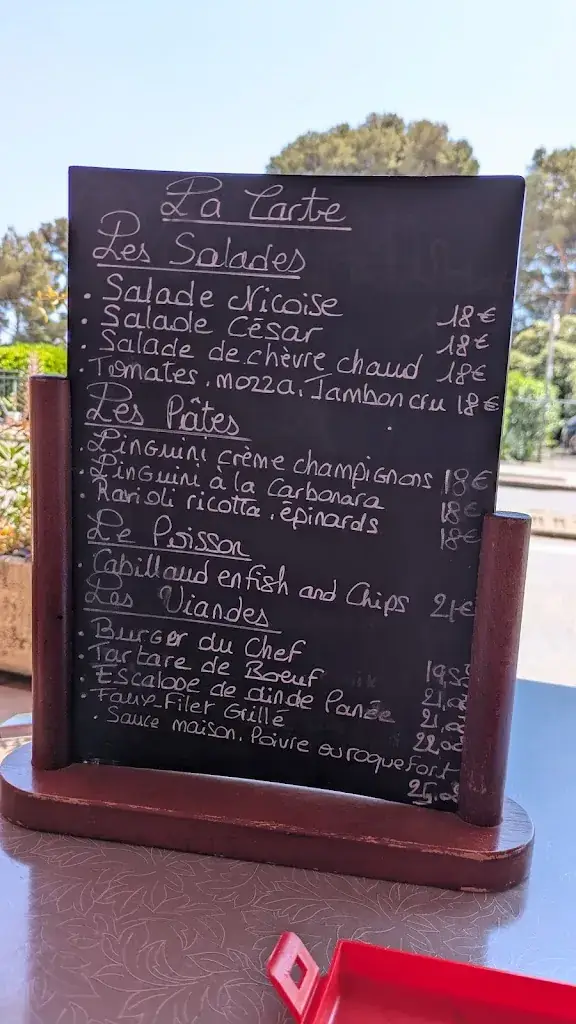 La Carte
Les Salades
. Salade Niçoise 18€
. Salade César 18€
. Salade de chèvre chaud 18€
. Tomates, mozza, Jambon cru 18€
Les Pâtes
. Linguini crème champignons 18€
. Linguini à la Carbonara 18€
. Ravioli ricotta, épinards 18€
Le Poisson
. Cabillaud en fish and Chips 21€
Les Viandes
. Burger du Chef 19,5
. Tartare de Boeuf 21,00
. Escalope de dinde Panée 21,00
. Faux-Filet Grillé 22,00
. Sauce maison, Poivre ou roquefort
25,00